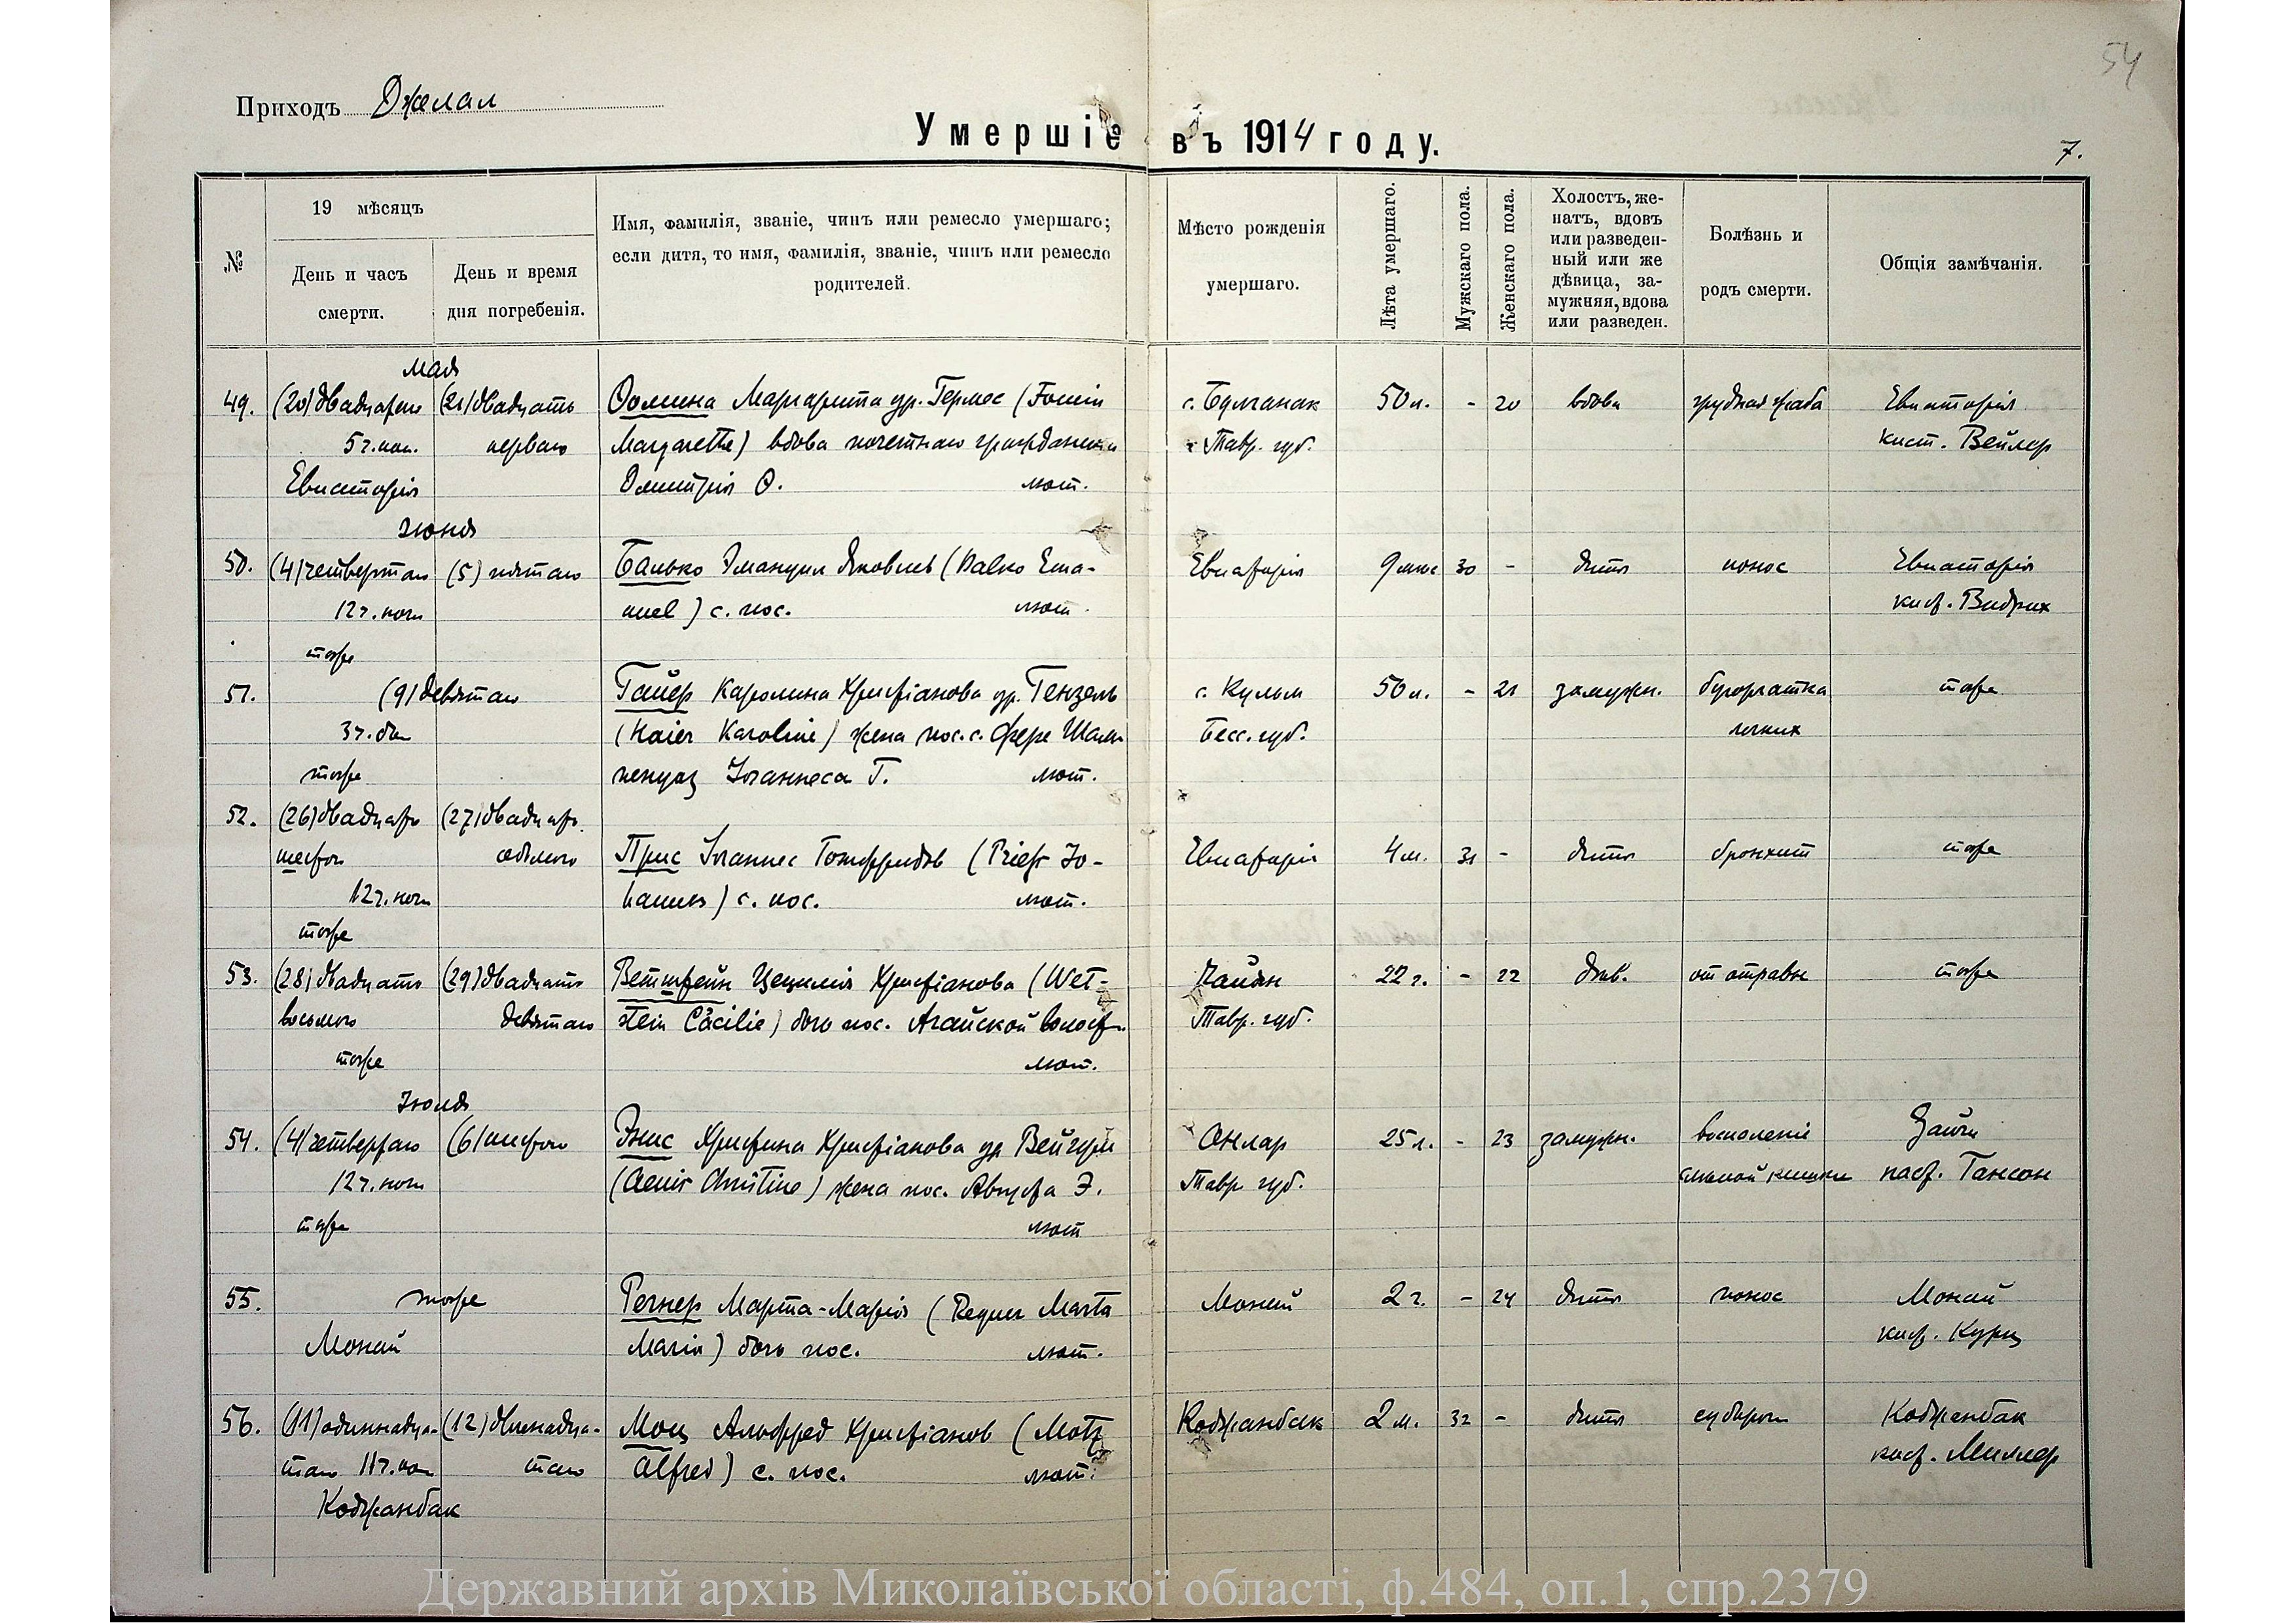 54
Приходъ Джелал
Умершіе въ 1914 году.
7.
№
19 мѣсяцъ
День и часъ смерти.
День и время дня погребенія.
Имя, фамилія, званіе, чинъ или ремесло умершаго;
если дитя, то имя, фамилія, званіе, чинъ или ремесло
родителей.
Мѣсто рожденія
умершаго.
Лѣта умершаго.
Мужскаго пола.
Женскаго пола.
Холостъ, же-
натъ, вдовъ
или разведен-
ный или же
дѣвица, за-
мужняя, вдова
или разведен.
Болѣзнь и
родъ смерти.
Общія замѣчанія.
мая
49. (20) двадцатаго (21) двадцать Фомина Маргарита ур. Гермес (Fomin с. Булганак 50 л. - 20 вдова грудная жаба Евпаторія
5 ч. поп. перваго Margarethe) вдова почетнаго гражданина Тавр. губ. кист. Вейлер
Евпаторія Димитрія Ф. лют.
Іюня
50. (4) четвертаго (5) пятаго Балько Эмануил Яковлев (Balko Ema- Евпаторія 9 мес 30 - дитя понос Евпаторія
12 ч. ноч nuel) с. пос. лют. кист. Видрих
тоже
51. (9) девятаго Гайер Каролина Христіанова ур. Гензель с. Кульм 50 л. - 21 замужн. бугорчатка тоже
3 ч. дня (Haier Karoline) жена пос. с. Фере Шам- Бесс. губ. легких
тоже пенуаз Іоаннеса Г. лют.
52. (26) двадцать (27) двадцать
шестого седьмого Прис Іоаннес Готфридов (Prieß Jo- Евпаторія 4 м. 31 - дитя бронхит тоже
12 ч. ноч hannes) с. пос. лют.
тоже
53. (28) двадцать (29) двадцать Ветштейн Цецилія Христіанова (Wet- Чайан 22 г. - 22 дѣв. от отравы тоже
восьмого девятаго stein Cäcilie) дочь пос. Агайской волости Тавр. губ.
тоже лют.
Іюля
54. (4) четвертаго (6) шестого Энис Христина Христіанова ур Вейгум Онлар 25 л. - 23 замужн. воспаленіе
12 ч. ноч (Aenis Christine) жена пос. Августа Э. Тавр. губ. слѣпой кишки паст. Гансон
тоже лют
55. тоже Регнер Марта-Марія (Regner Marta Монай 2 г. - 24 дитя понос Монай
Монай Maria) дочь пос. лют. кист. Курц
56. (11) одиннадца- (12) двѣнадца- Моц Альфред Христіанов (Motz Коджанбак 2 м. 32 - дитя судороги Коджанбак
таго 11 ч. таго Alfred) с. пос. лют. кист. Миллер
Коджанбак
Державний архів Миколаївської області, ф.484, оп.1, спр.2379